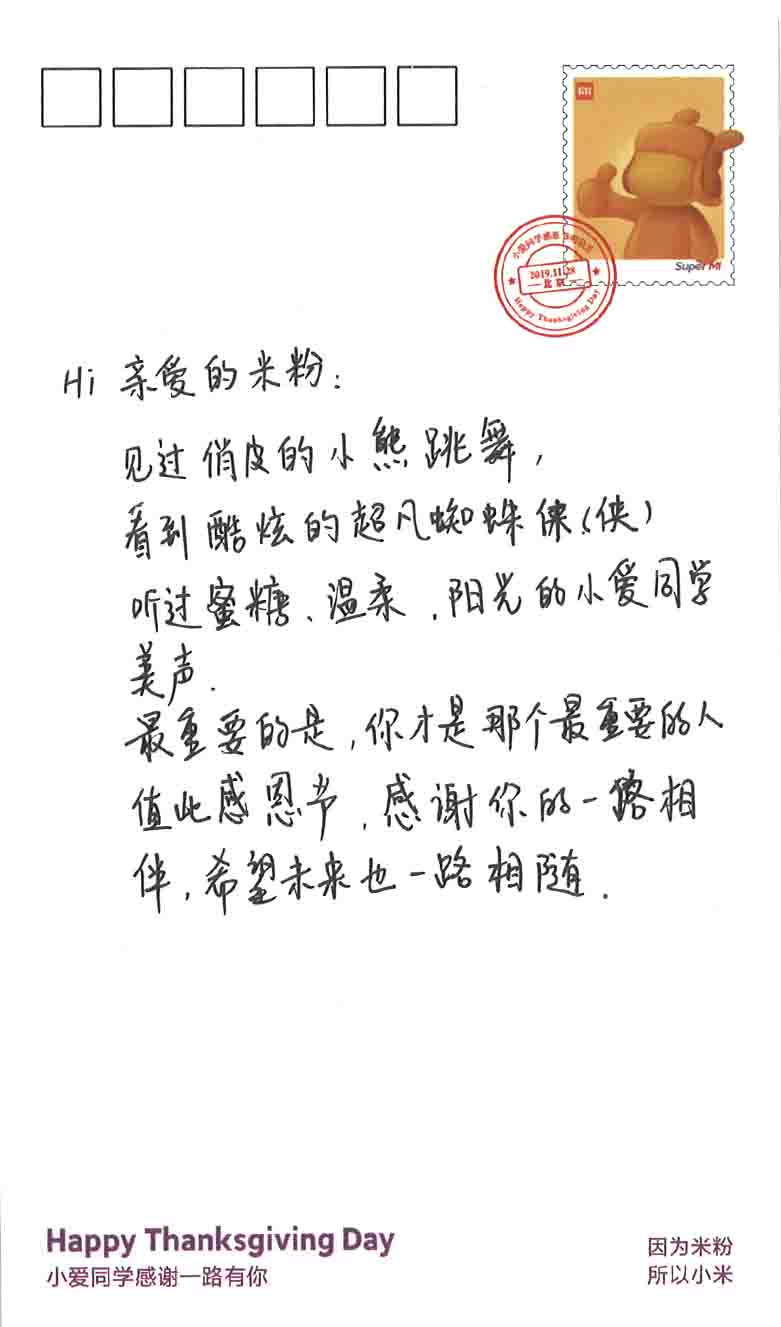 MI
Super MI
小爱同学感恩
2019.11.28
北京
Happy Thanksgiving Day
Hi 亲爱的米粉：
见过俏皮的小熊跳舞，
看到酷炫的超凡蜘蛛俫(侠)
听过蜜糖、温柔、阳光的小爱同学
美声.
最重要的是，你才是那个最重要的人
值此感恩节，感谢你的一路相
伴，希望未来也一路相随.
Happy Thanksgiving Day
小爱同学感谢一路有你
因为米粉
所以小米